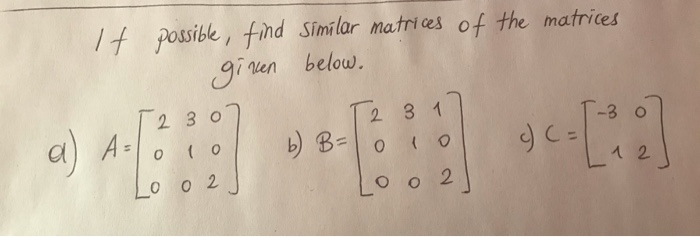 If possible, find similar matrices of the matrices
given below.
a) A = [2 3 0
0 1 0
0 0 2]
b) B = [2 3 1
0 1 0
0 0 2]
c) C = [-3 0
1 2]